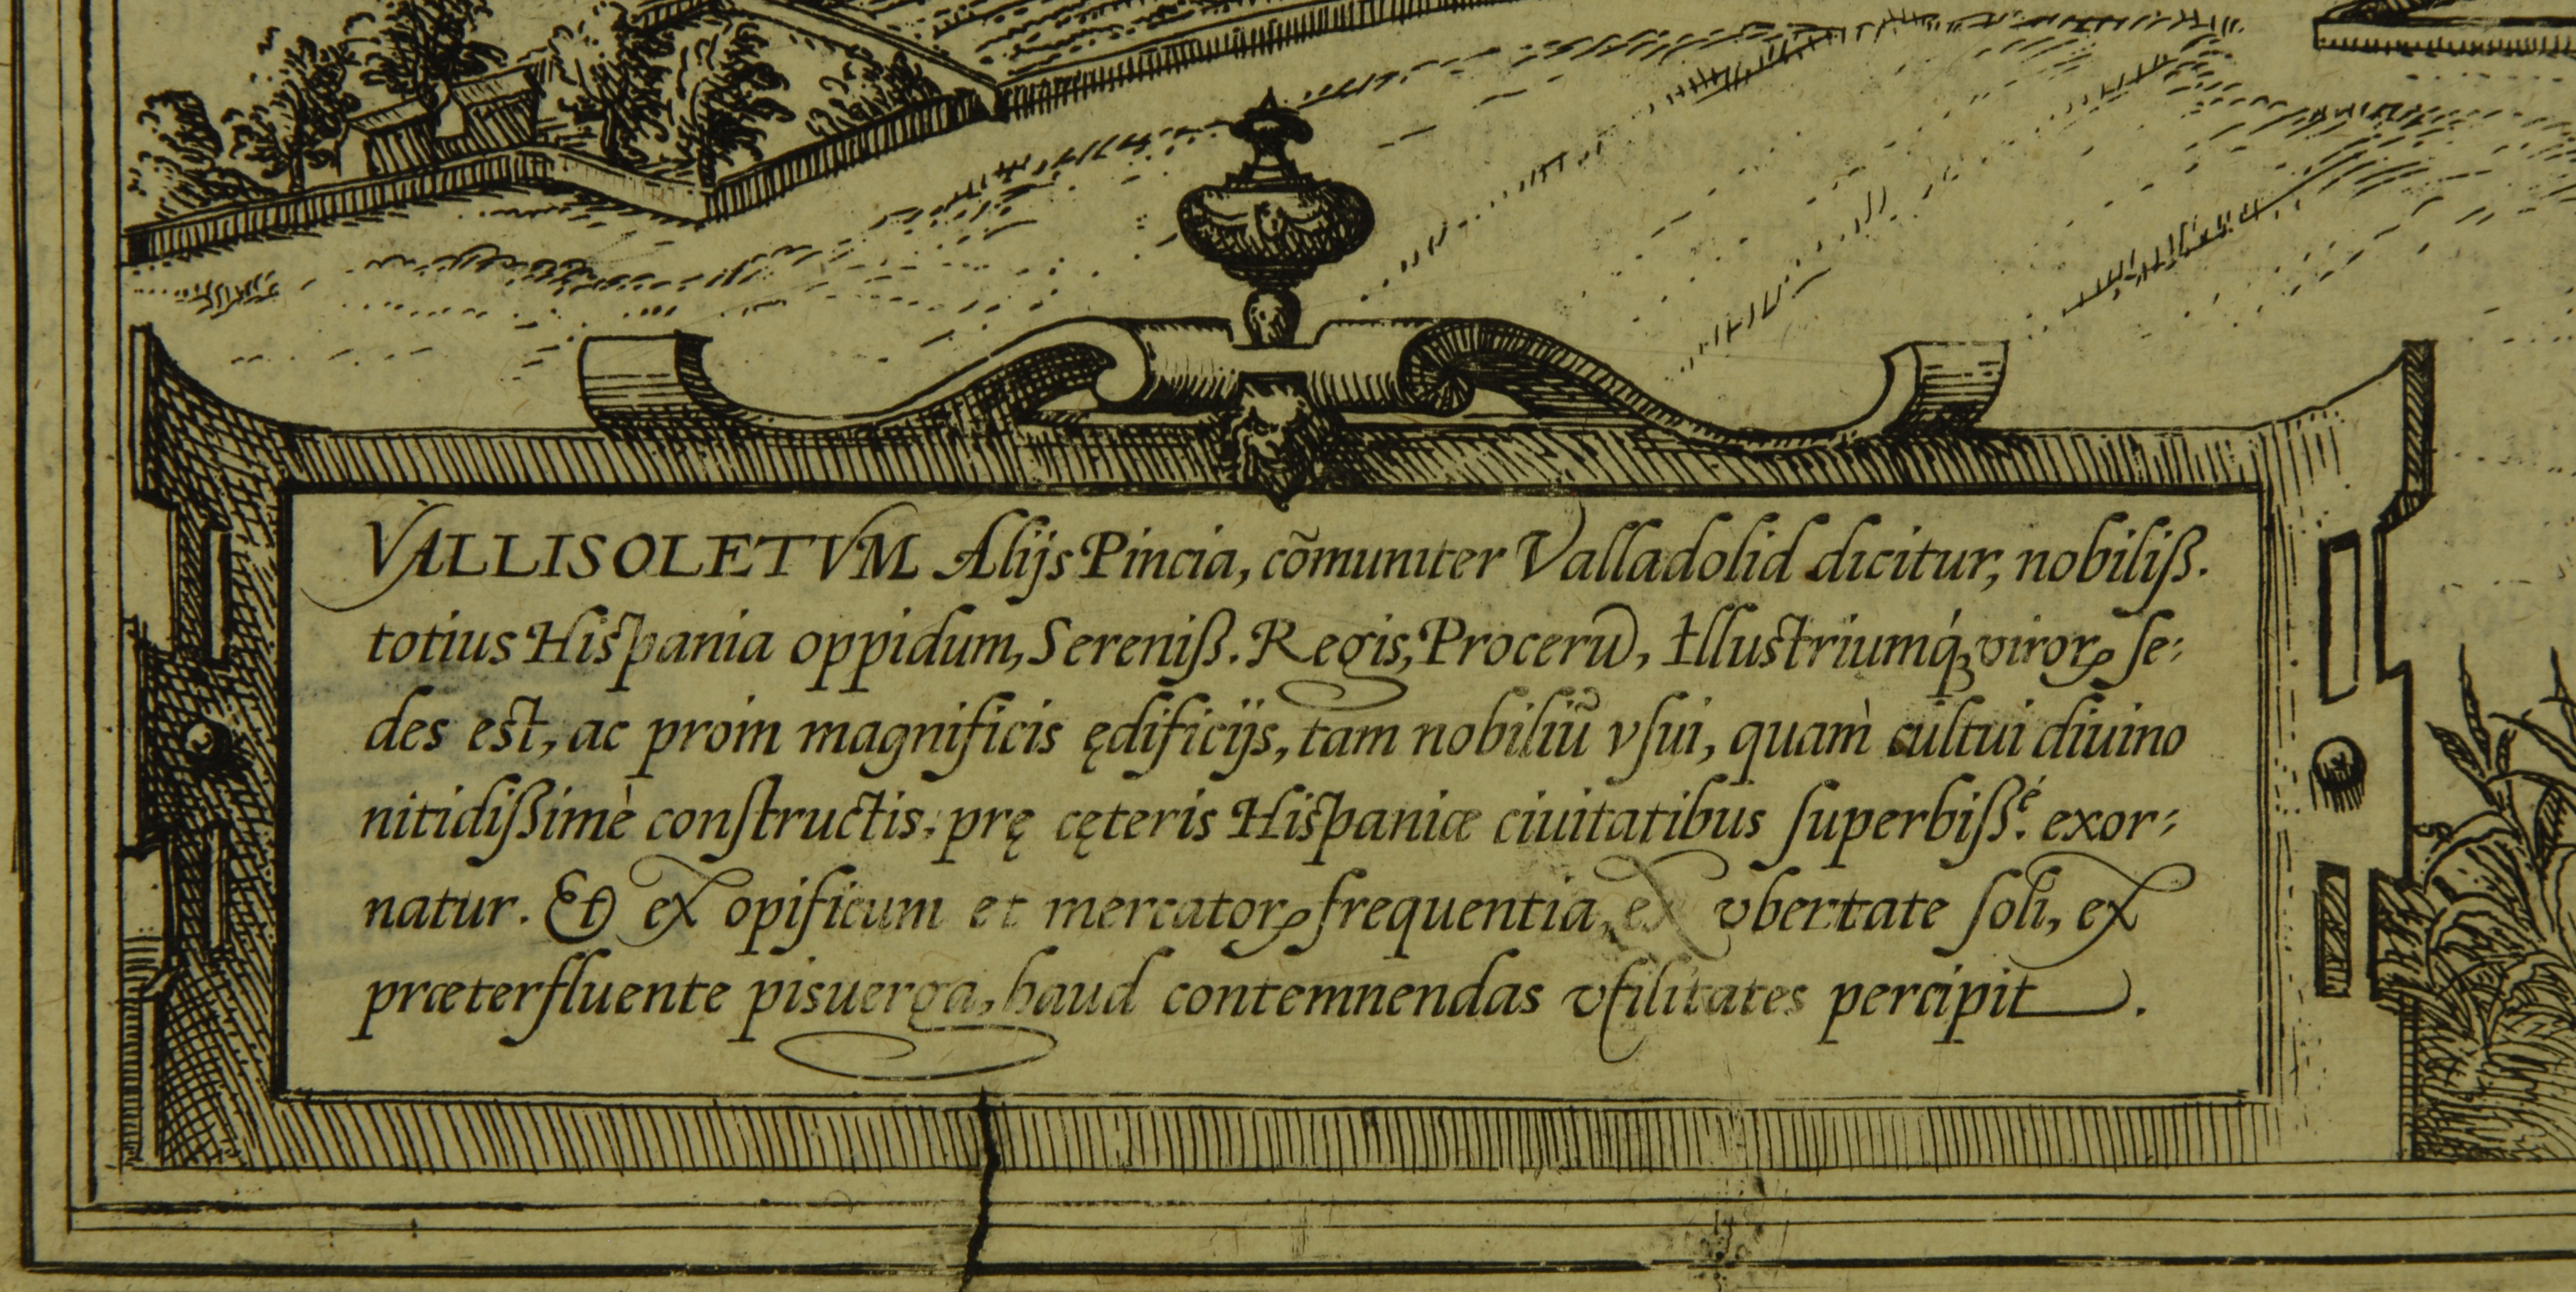 VALLISOLETVM Alijs Pincia, cõmuniter Valladolid dicitur, nobiliß.
totius Hispania oppidum, Sereniß. Regis, Procerũ, Illustriumq́ꝫ virorꝝ se-
des est, ac proin magnificis ędificijs, tam nobiliũ vſui, quam̀ cultui diuino
nitidißimè conſtructis, prę cęteris Hispaniæ ciuitatibus ſuperbiß.é exor-
natur. Et ex opificum et mercatorꝝ frequentia, ex vbertate ſoli, ex
præterfluente pisuerga, haud contemnendas vtilitates percipit.